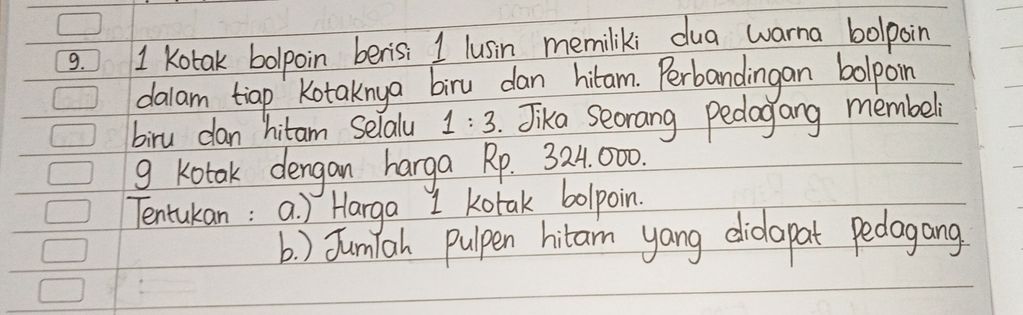 9. 1 Kotak bolpoin berisi 1 lusin memiliki dua warna bolpoin
dalam tiap Kotaknya biru dan hitam. Perbandingan bolpoin
biru dan hitam Selalu 1 : 3. Jika Seorang pedagang membeli
9 Kotak dengan harga Rp. 324.000.
Tentukan : a.) Harga 1 kotak bolpoin.
b.) Jumlah Pulpen hitam yang didapat pedagang.